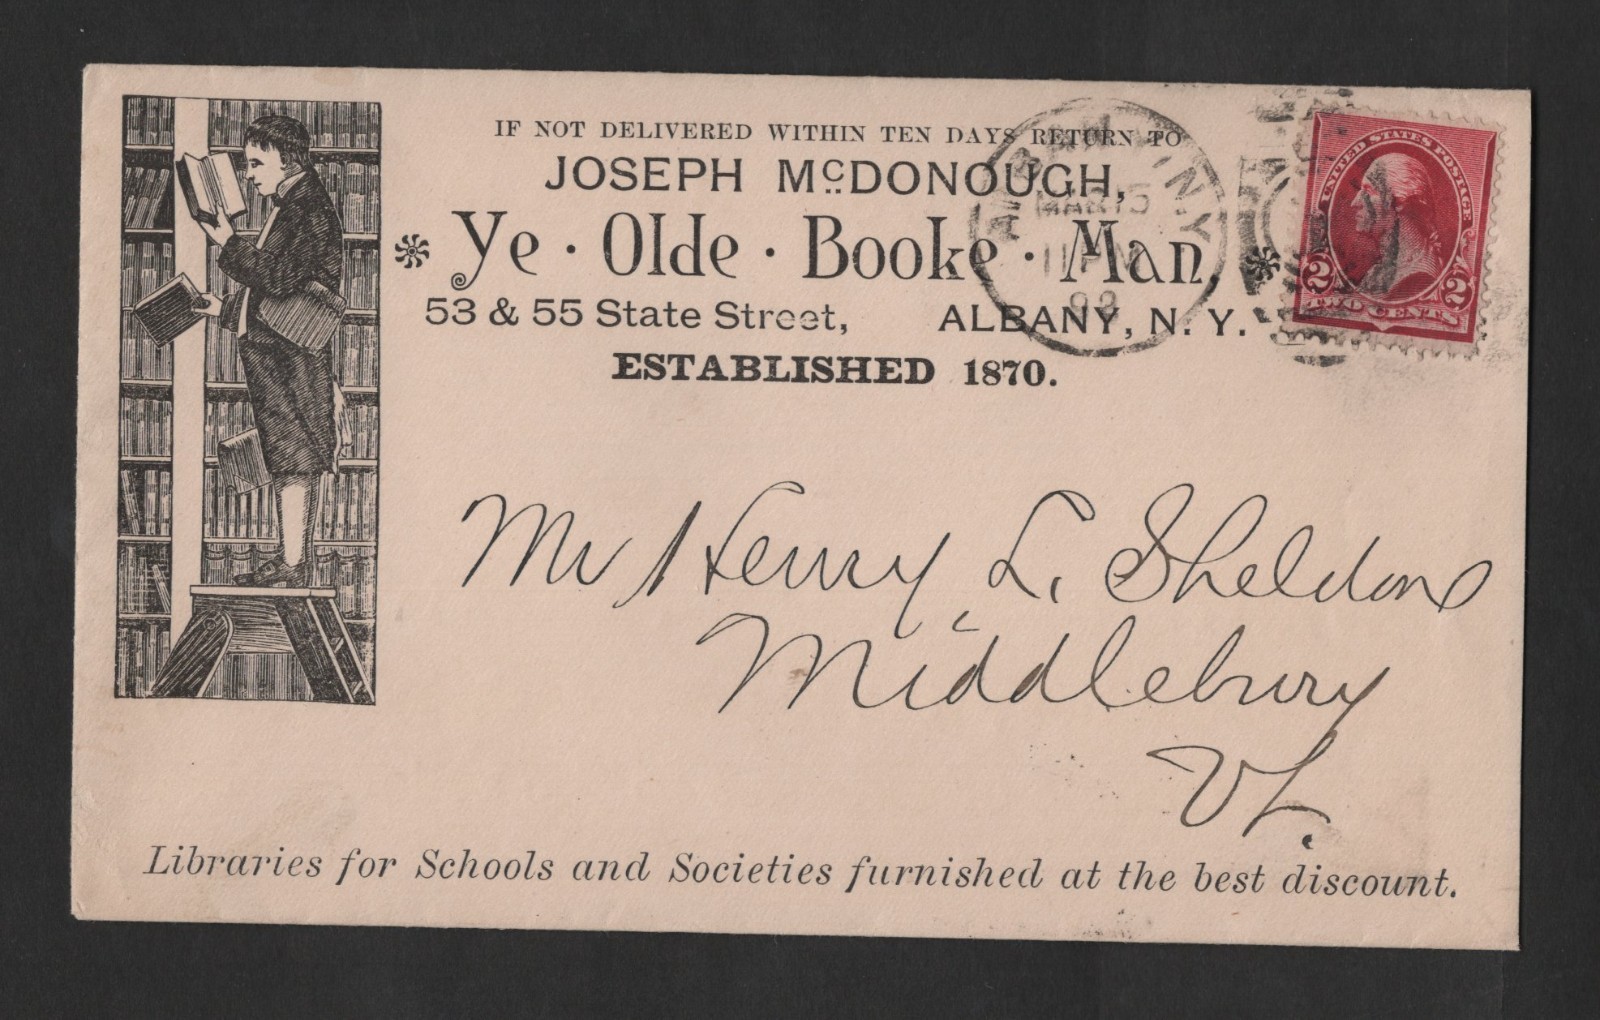 IF NOT DELIVERED WITHIN TEN DAYS RETURN TO
JOSEPH McDONOUGH,
Ye · Olde · Booke · Man,
53 & 55 State Street, ALBANY, N. Y.
ESTABLISHED 1870.
ALBANY, N.Y.
MAR 15
11 PM
UNITED STATES POSTAGE
2 2
TWO CENTS
Mr Henry L. Sheldon
Middlebury
Vt.
Libraries for Schools and Societies furnished at the best discount.